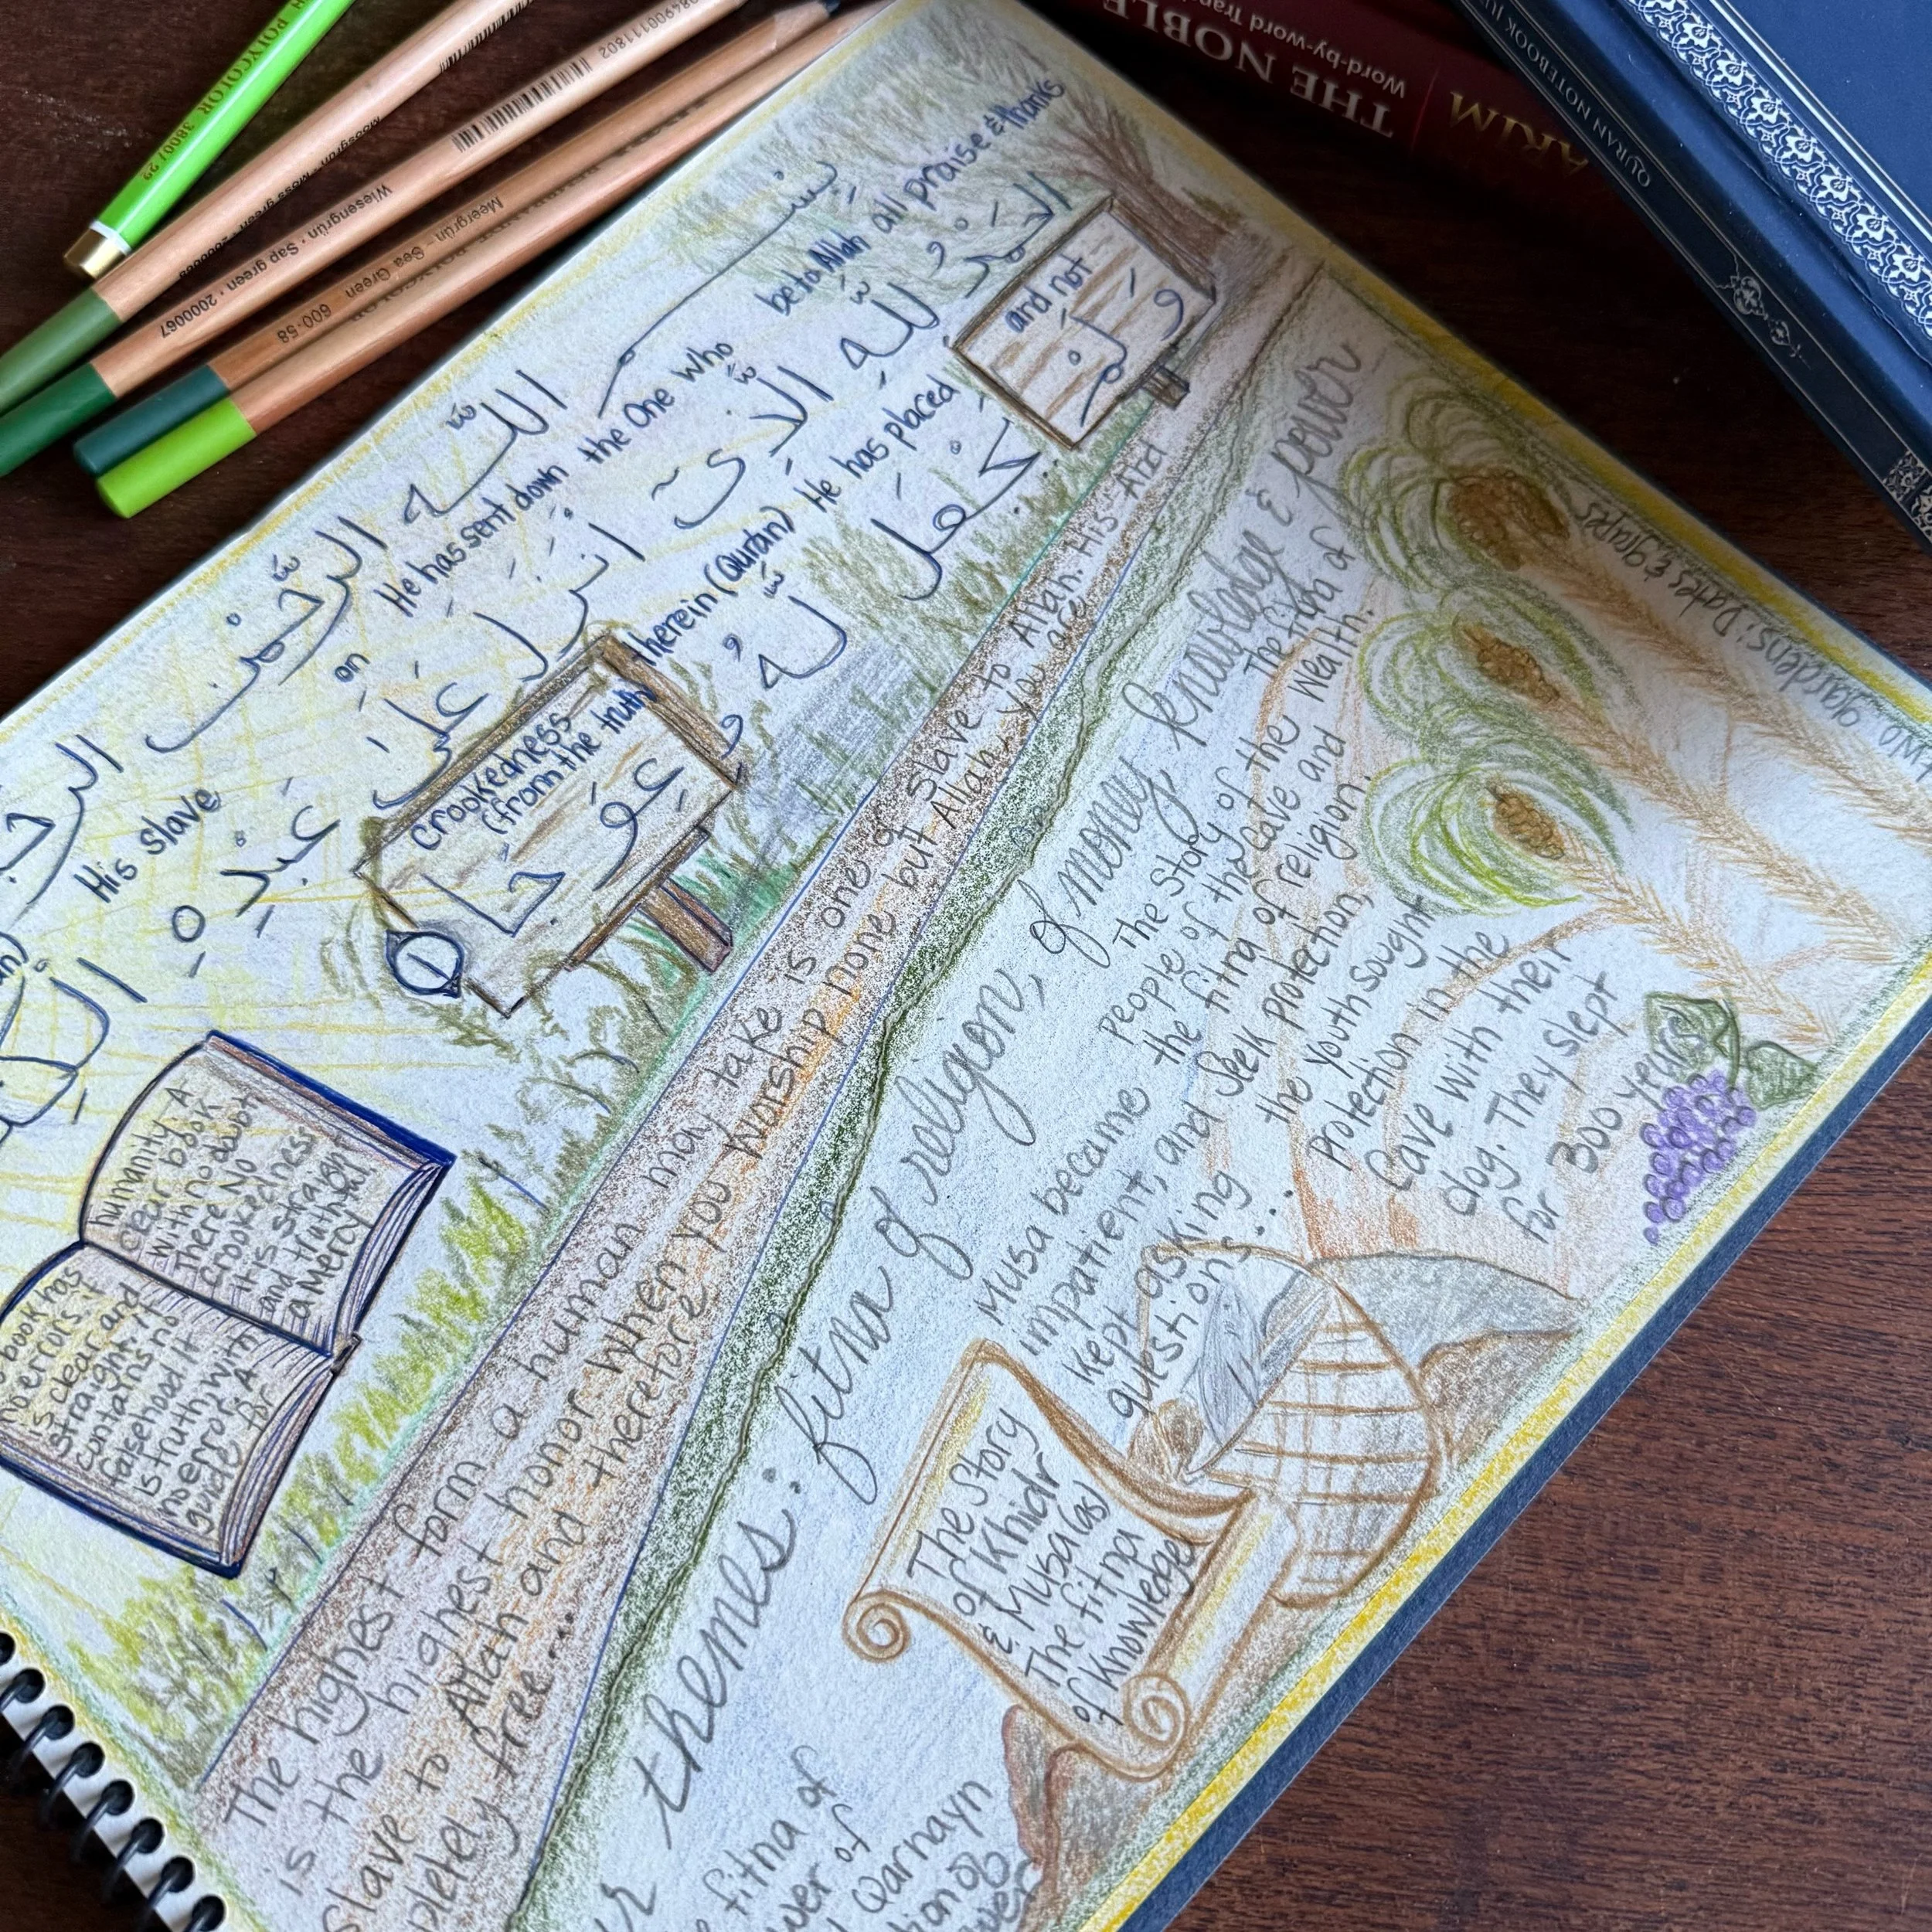 POLYCOLOR 3800/ 29
Moosgrün · Moss green · 2000068
8690011802
Wiesengrün · Sap green · 2000067
Meergrün – Sea Green 600-58
THE NOBLE
Word-by-word
ARIM
QURAN NOTEBOOK
بِسْــــمِ اللّٰهِ الرَّحْمٰنِ
be to Allah all praise & thanks
اَلْحَمْدُ لِلّٰهِ
on He has sent down the One who
الَّذِیْۤ اَنْزَلَ عَلٰی
His slave
عَبْدِهِ
therein (Quran) He has placed
وَ لَمْ
and not
یَجْعَلْ
لَّهٗ
crookedness
(from the truth)
عِوَجًا
١
book has
no errors. it
is clear and
straight. it
contains no
falsehood it
is truth with
no error. A
guide for
humanity. A
clear book
with no doubt
There No
crookedness
it is straight
and truthful
a Mercy
The highest form a human may take is one of slave to Allah. His And
is the highest honor when you worship none but Allah. you are
slave to Allah and therefore
pletely free...
themes: fitna of religion, of money, knowledge & power
The Story of the
people of the Cave and
the fitna of religion.
Seek protection,
the youth sought
protection in the
Cave with their
dog. They slept
for 300 years
The fitna of
the Wealth.
two gardens: Dates & grapes
Musa became
impatient, and
kept asking
questions...
The Story
of Khidr
& Musa (as)
The fitna
of Knowledge
fitna of
Qarnayn